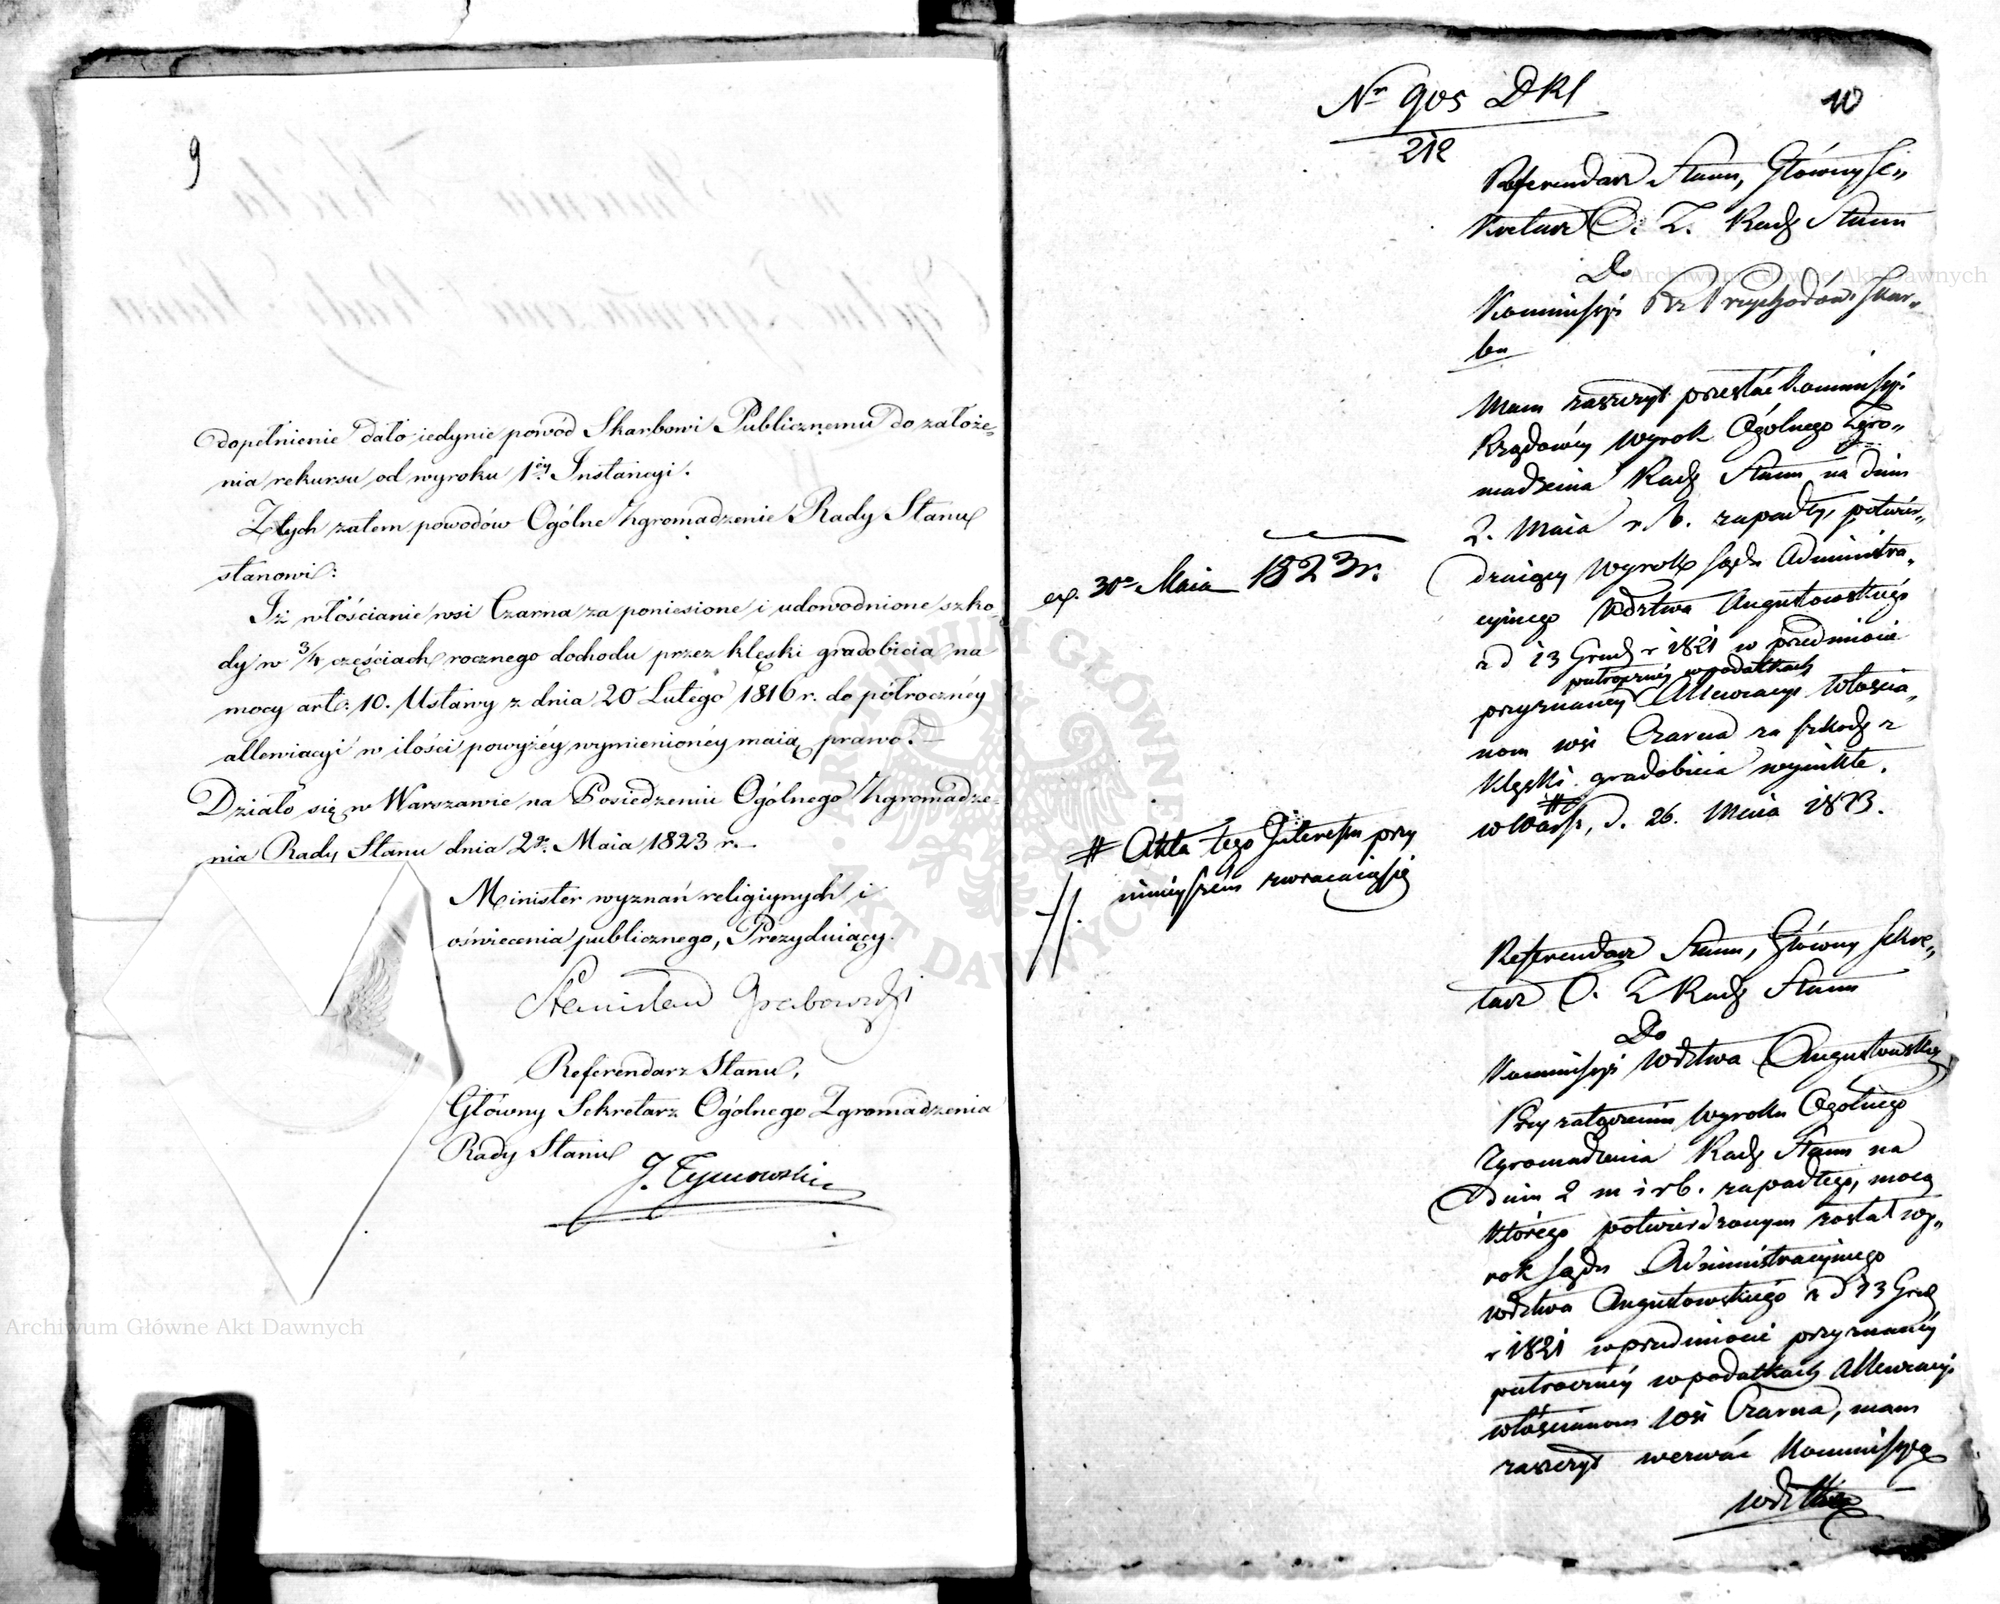 9
dopełnienie dało iedynie powód Skarbowi Publicznemu do założe-
nia rekursu od wyroku 1éy Instancyi.
Z tych zatem powodów Ogólne Zgromadzenie Rady Stanu
stanowi:
Iż włościanie wsi Czarna za poniesione i udowodnione szko-
dy w 3/4 częściach rocznego dochodu przez klęski gradobicia na
mocy art: 10. Ustawy z dnia 20 Lutego 1816 r. do półrocznéy
allewiacyi w ilości powyżéy wymienionéy maią prawo.
Działo się w Warszawie na Posiedzeniu Ogólnego Zgromadze-
nia Rady Stanu dnia 2go Maia 1823 r.
Minister wyznań religiynych i
oświecenia publicznego, Prezyduiący.
Stanisław Grabowski
Referendarz Stanu,
Główny Sekretarz Ogólnego Zgromadzenia
Rady Stanu
J. Tymowski
Nr 905 DKl
212
10
Referendarz Stanu, Główny Se„
kretarz O. Z. Rady Stanu
Do
Kommissyi Rz Przychodów i Skar„
bu
Mam zaszczyt przesłać Kommissyi
Rządowéy wyrok Ogólnego Zgro„
madzenia Rady Stanu na dniu
2. Maia r. b. zapadły, potwier„
dzaiący wyrok Sądu Administra„
cyinego Wdztwa Augustowskiego
z d 13 Grud r 1821 w przedmiocie
półroczney w podatkach
przyznaney Allewiacyi włościa„
nom wsi Czarna za szkody z
klęski gradobicia wynikłe.
#
w Warsz, d. 26. Maia 1823.
ex. 30go Maia 1823 r.
# Akta tego Interessu przy
ninieyszem zwracaią się
Referendarz Stanu, Główny Sekre„
tarz O. Z Rady Stanu
Do
Kommissyi Wdztwa Augustowskiego
Przy załączeniu wyroku Ogólnego
Zgromadzenia Rady Stanu na
dniu 2 m i r b. zapadłego, mocą
którego potwierdzonym został wy„
rok Sądu Administracyinego
Wdztwa Augustowskiego z d 13 Grud
r 1821 w przedmiocie przyznaney
półroczney w podatkach Allewiacyi
włościanom wsi Czarna, mam
zaszczyt wezwać Kommissyą
Wdztwa
Archiwum Główne Akt Dawnych
Archiwum Główne Akt Dawnych
ARCHIWUM GŁÓWNE AKT DAWNYCH